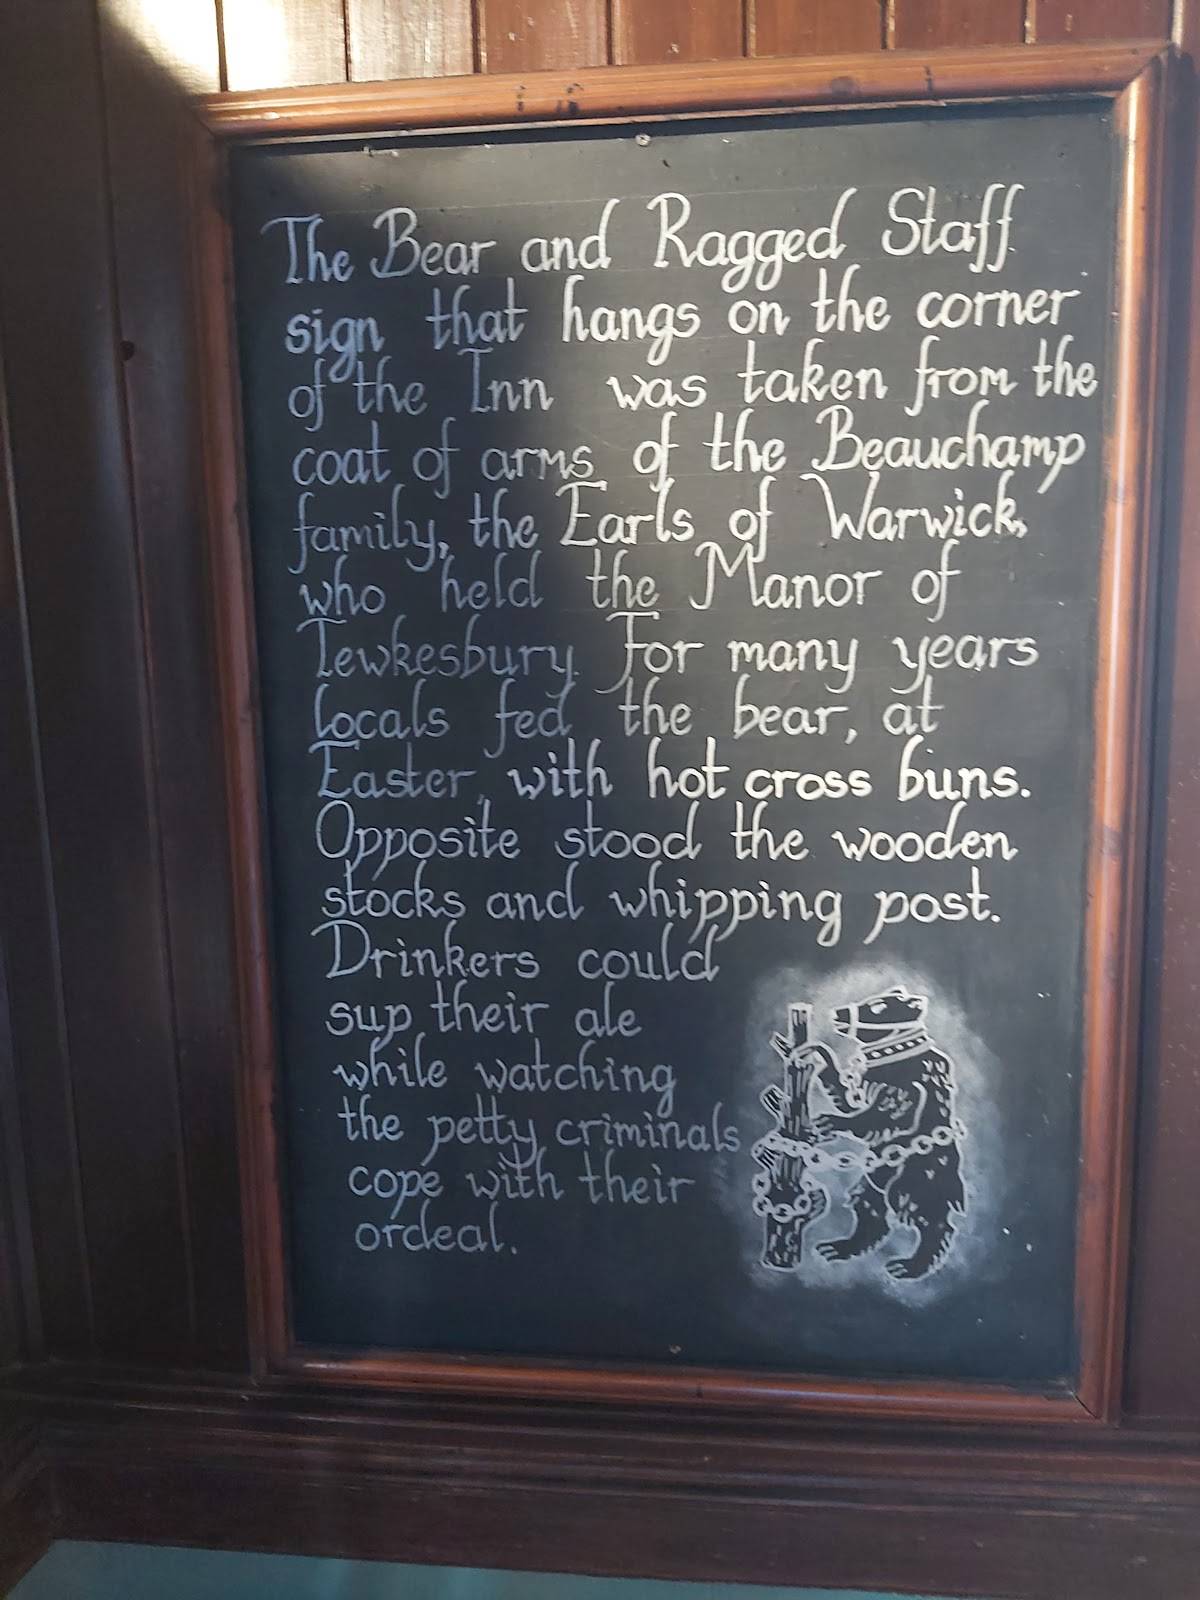 The Bear and Ragged Staff
sign that hangs on the corner
of the Inn was taken from the
coat of arms of the Beauchamp
family, the Earls of Warwick,
who held the Manor of
Tewkesbury. For many years
locals fed the bear, at
Easter, with hot cross buns.
Opposite stood the wooden
stocks and whipping post.
Drinkers could
sup their ale
while watching
the petty criminals
cope with their
ordeal.